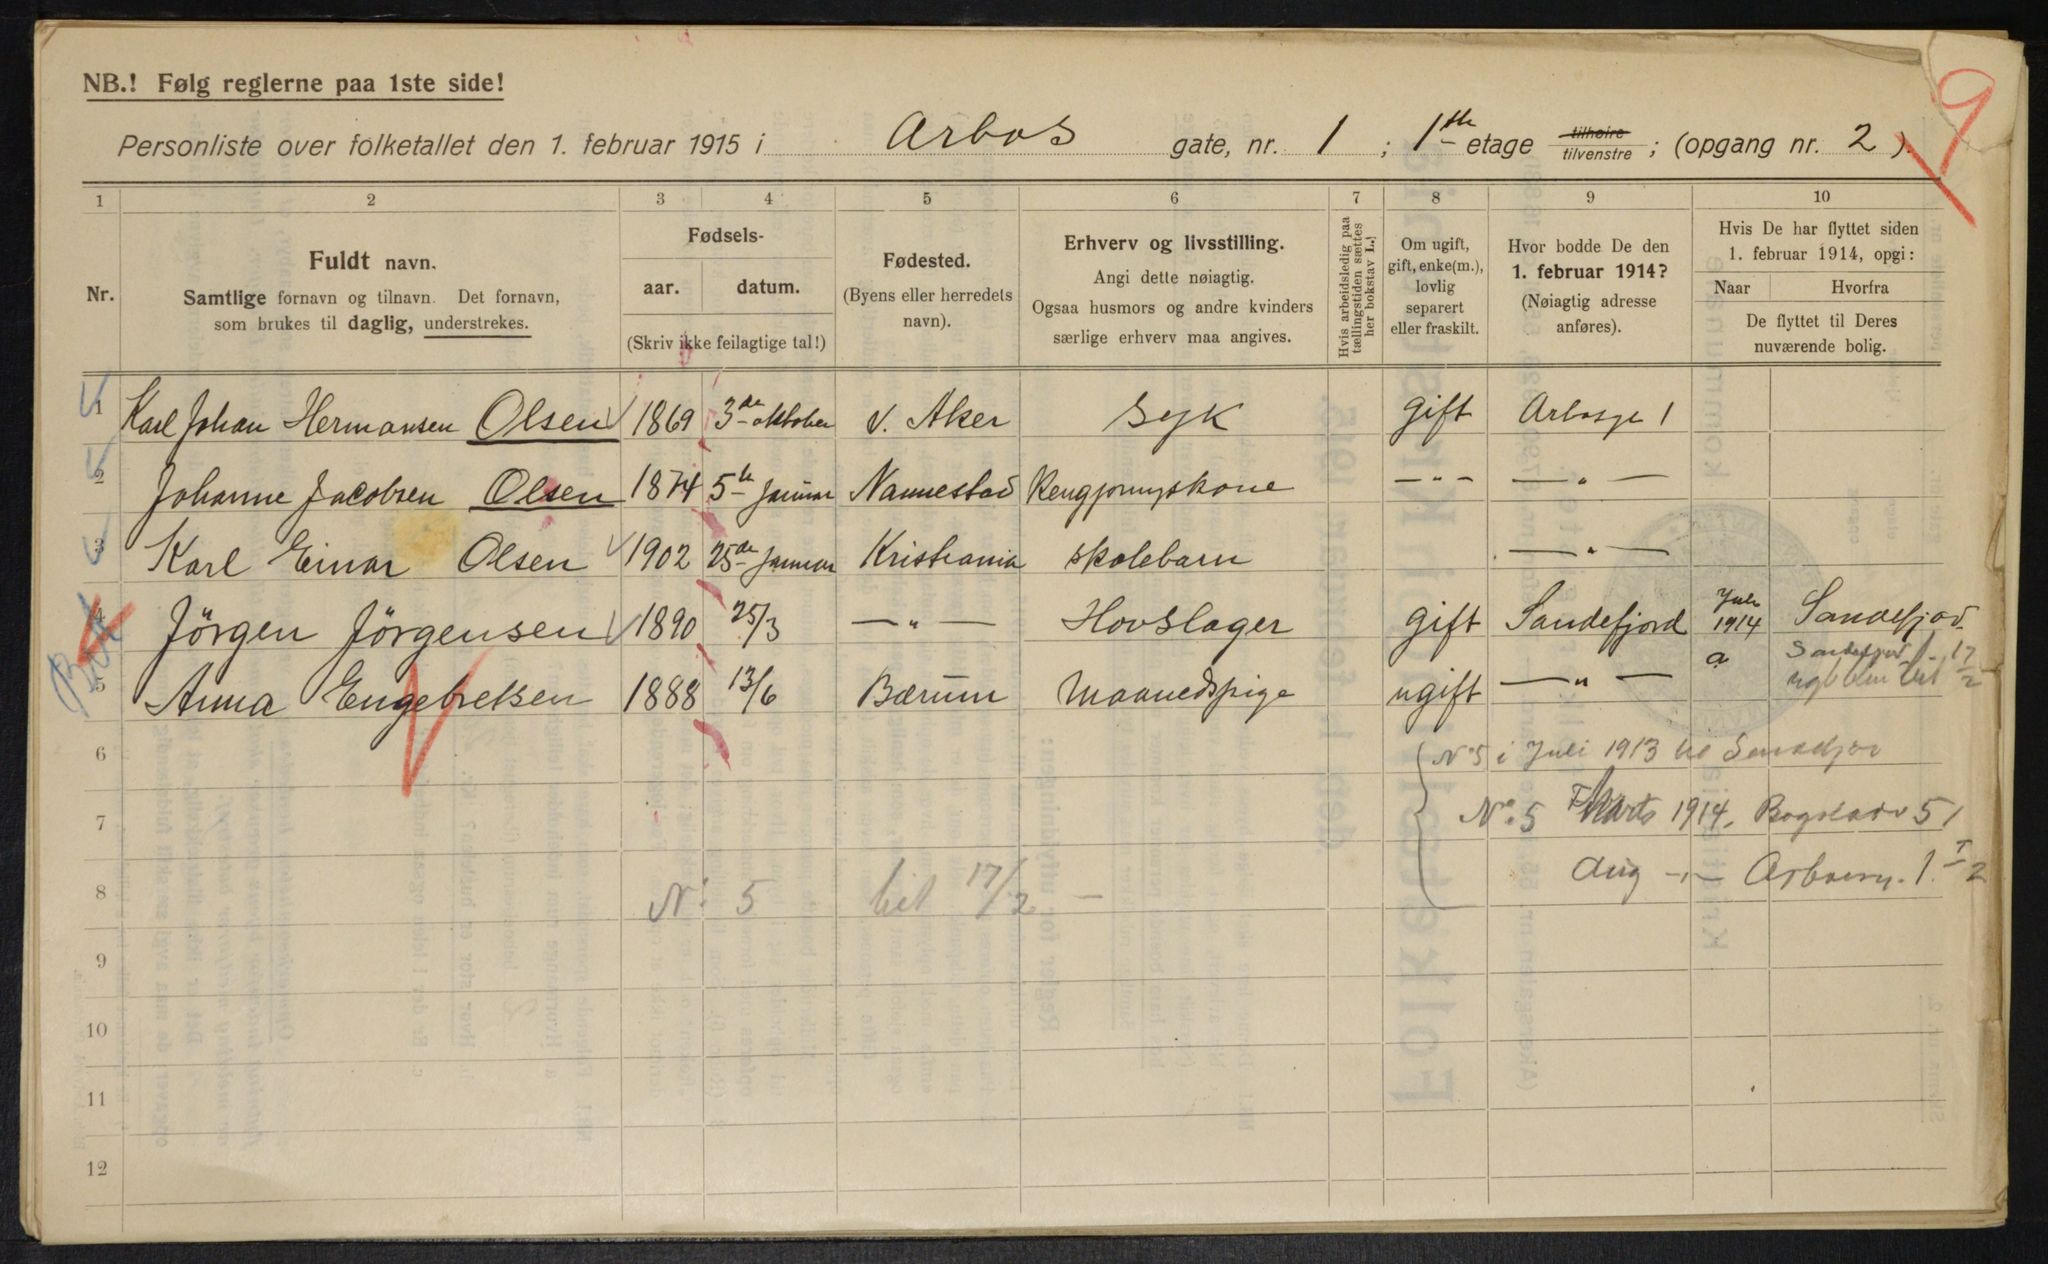 NB.! Følg reglerne paa 1ste side!
9
Personliste over folketallet den 1. februar 1915 i Arbos gate, nr. 1 ; 1ste etage tilhøire tilvenstre ; (opgang nr. 2 ).
1 2 3 4 5 6 7 8 9 10
Nr.
Fuldt navn.
Samtlige fornavn og tilnavn. Det fornavn,
som brukes til daglig, understrekes.
Fødsels-
aar. datum.
(Skriv ikke feilagtige tal!)
Fødested.
(Byens eller herredets
navn).
Erhverv og livsstilling.
Angi dette nøiagtig.
Ogsaa husmors og andre kvinders
særlige erhverv maa angives.
Hvis arbeidsledig paa
tællingstiden sættes
her bokstav L.!
Om ugift,
gift, enke(m.),
lovlig
separert
eller fraskilt.
Hvor bodde De den
1. februar 1914?
(Nøiagtig adresse
anføres).
Hvis De har flyttet siden
1. februar 1914, opgi:
Naar Hvorfra
De flyttet til Deres
nuværende bolig.
1 Karl Johan Hermansen Olsen 1869 3de oktober v. Aker Syk gift Arbosgt 1
2 Johanne Jacobsen Olsen 1874 5te Januar Nannestad Rengjøringskone — " — — " —
3 Karl Einar Olsen 1902 25de Januar Kristiania skolebarn — " —
4 Jörgen Jörgensen 1890 25/3 — " — Hovslager gift Sandefjord Juli 1914 Sandefjord
5 Anna Engebretsen 1888 13/6 Bærum Maanedspige ugift — " — a Sandefjord
6 No 5 i Juli 1913 til Sandefjor
7 No. 5 Marts 1914, Bogstadv 51
8 No 5 17/2 — Aug — " — 1 I 2
9
10
11
12